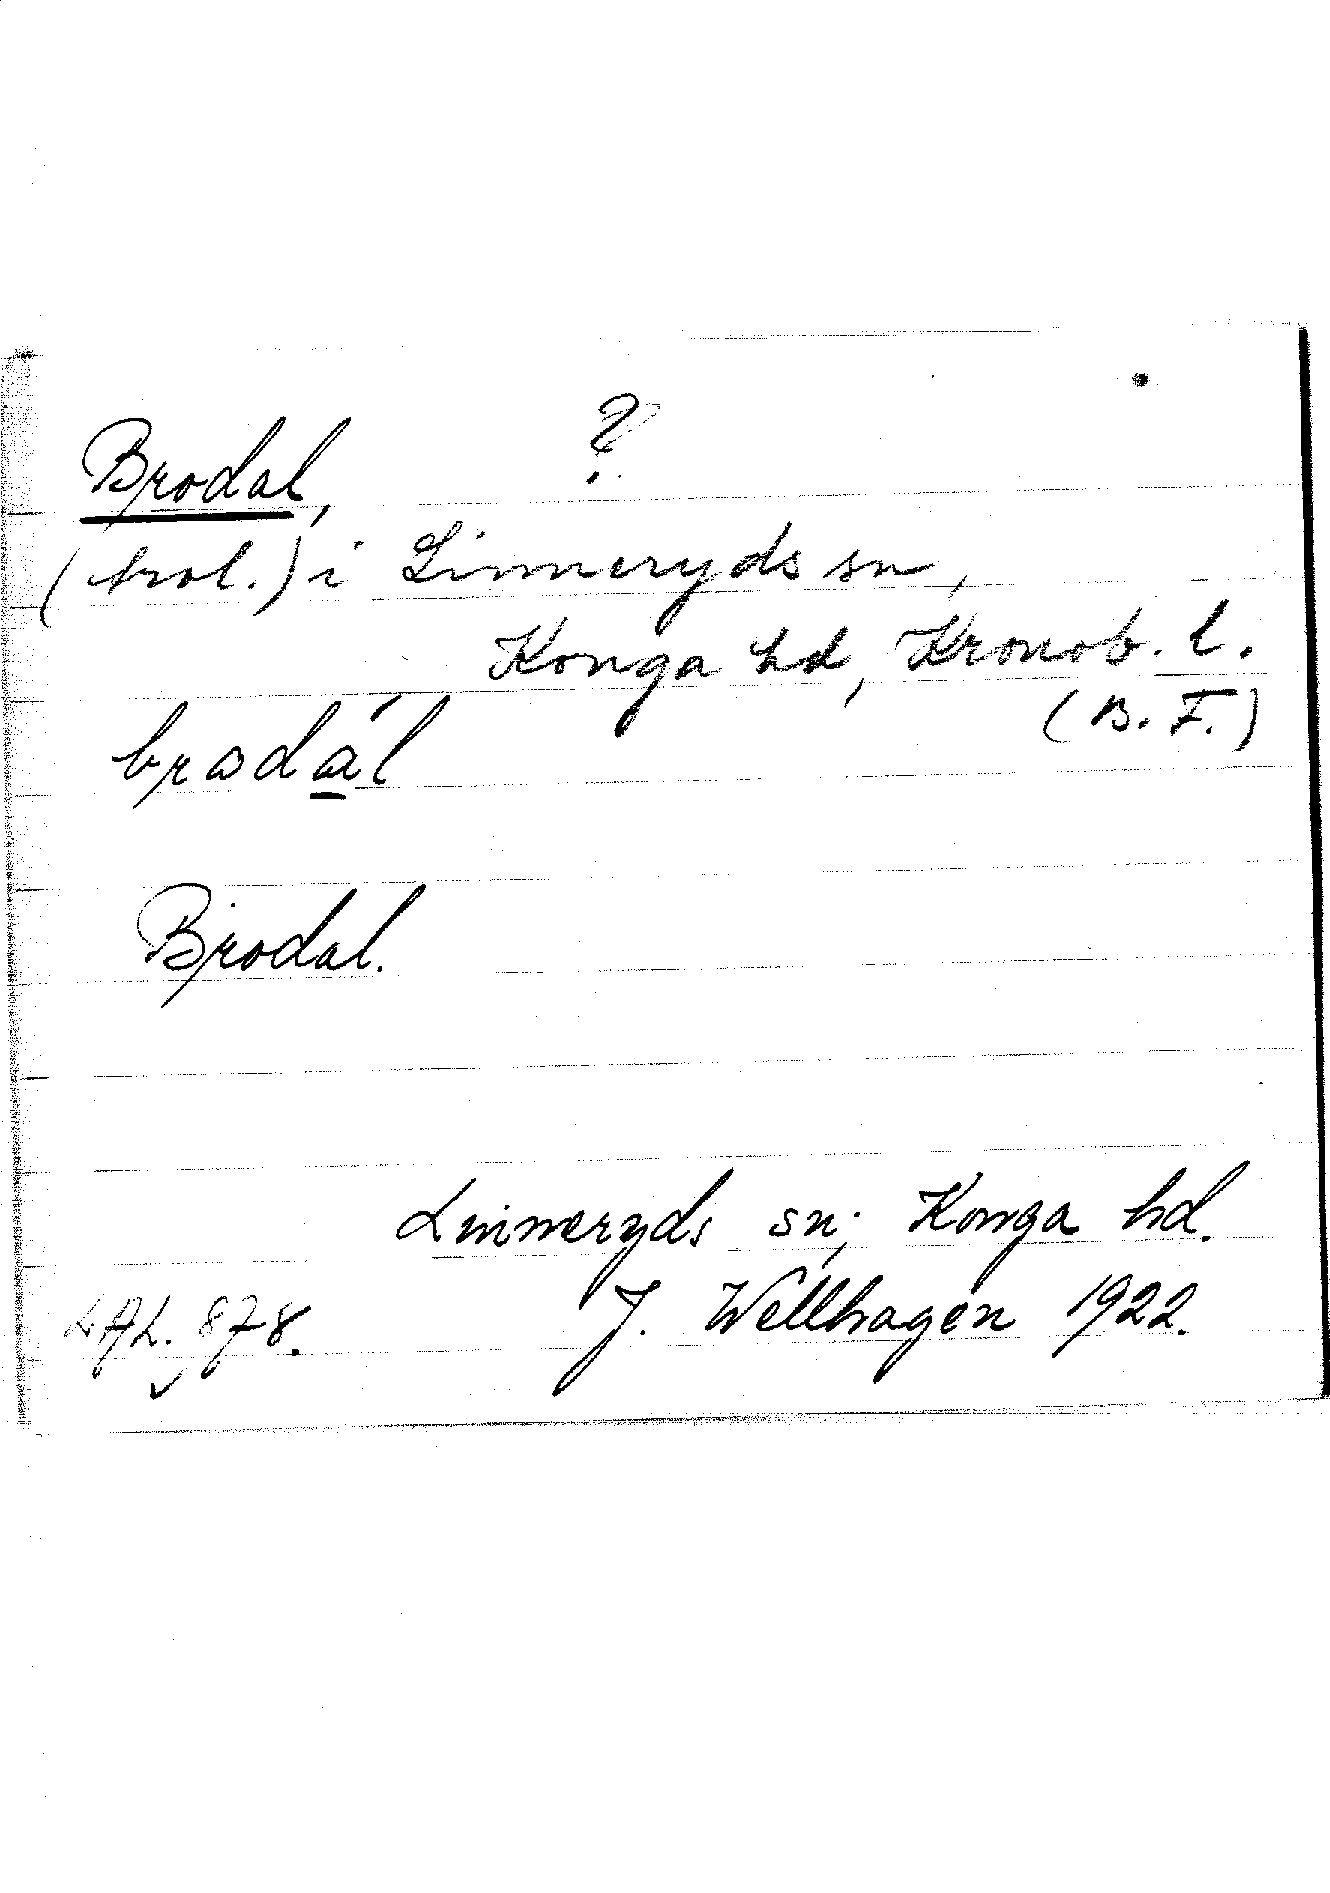 Brodal, ?
(trol.) i Linneryds sn,
Konga hd, Kronob. l.
(B. F.)
brodál
Brodal.
Linneryds sn; Konga hd.
J. Wellhagen 1922.
LAL. 878.